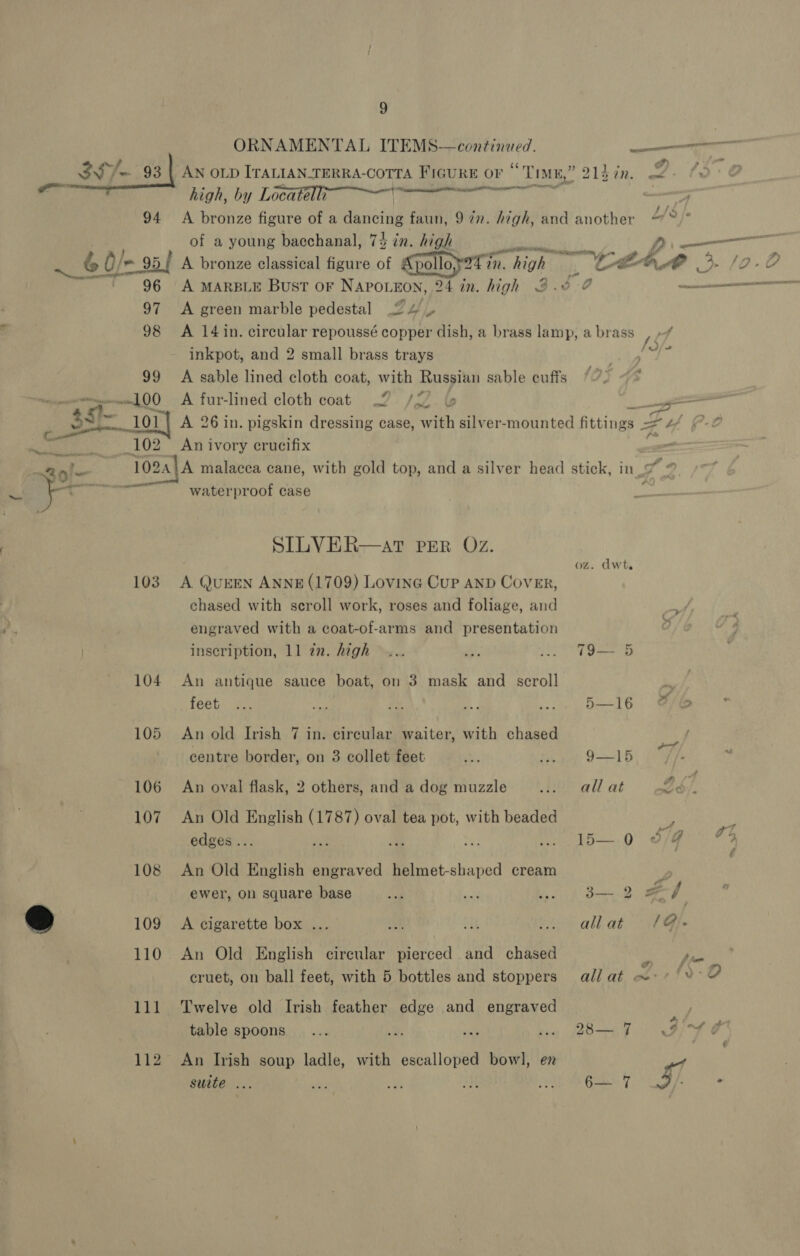 9
ORNAMENTAL ITEMS—continued.
35/- 93 AN OLD ITALIAN TERRA-COTTA FIGURE OF “TIME,” 21½ in.
high, by Locatelli
94 A bronze figure of a dancing faun, 9 in. high, and another
of a young bacchanal, 7½ in. high
60/- 95 A bronze classical figure of Apollo, 24 in. high 3. 10. 0
96 A MARBLE BUST OF NAPOLEON, 24 in. high
97 A green marble pedestal
98 A 14 in. circular repoussé copper dish, a brass lamp, a brass
inkpot, and 2 small brass trays
99 A sable lined cloth coat, with Russian sable cuffs
100 A fur-lined cloth coat
35/- 101 A 26 in. pigskin dressing case, with silver-mounted fittings
102 An ivory crucifix
102A A malacca cane, with gold top, and a silver head stick, in
waterproof case
SILVER—AT PER OZ.
oz. dwt.
103 A QUEEN ANNE (1709) LOVING CUP AND COVER,
chased with scroll work, roses and foliage, and
engraved with a coat-of-arms and presentation
inscription, 11 in. high ... ... ... 79— 5
104 An antique sauce boat, on 3 mask and scroll
feet ... ... ... ... ... 5—16
105 An old Irish 7 in. circular waiter, with chased
centre border, on 3 collet feet ... ... 9—15
106 An oval flask, 2 others, and a dog muzzle ... all at
107 An Old English (1787) oval tea pot, with beaded
edges ... ... ... ... ... 15— 0
108 An Old English engraved helmet-shaped cream
ewer, on square base ... ... ... 3— 2
109 A cigarette box ... ... ... ... all at
110 An Old English circular pierced and chased
cruet, on ball feet, with 5 bottles and stoppers all at
111 Twelve old Irish feather edge and engraved
table spoons ... ... ... ... 28— 7
112 An Irish soup ladle, with escalloped bowl, en
suite ... ... ... ... ... 6— 7